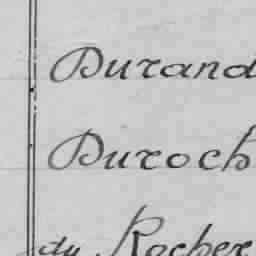 Durand
Duroch
du Rocher